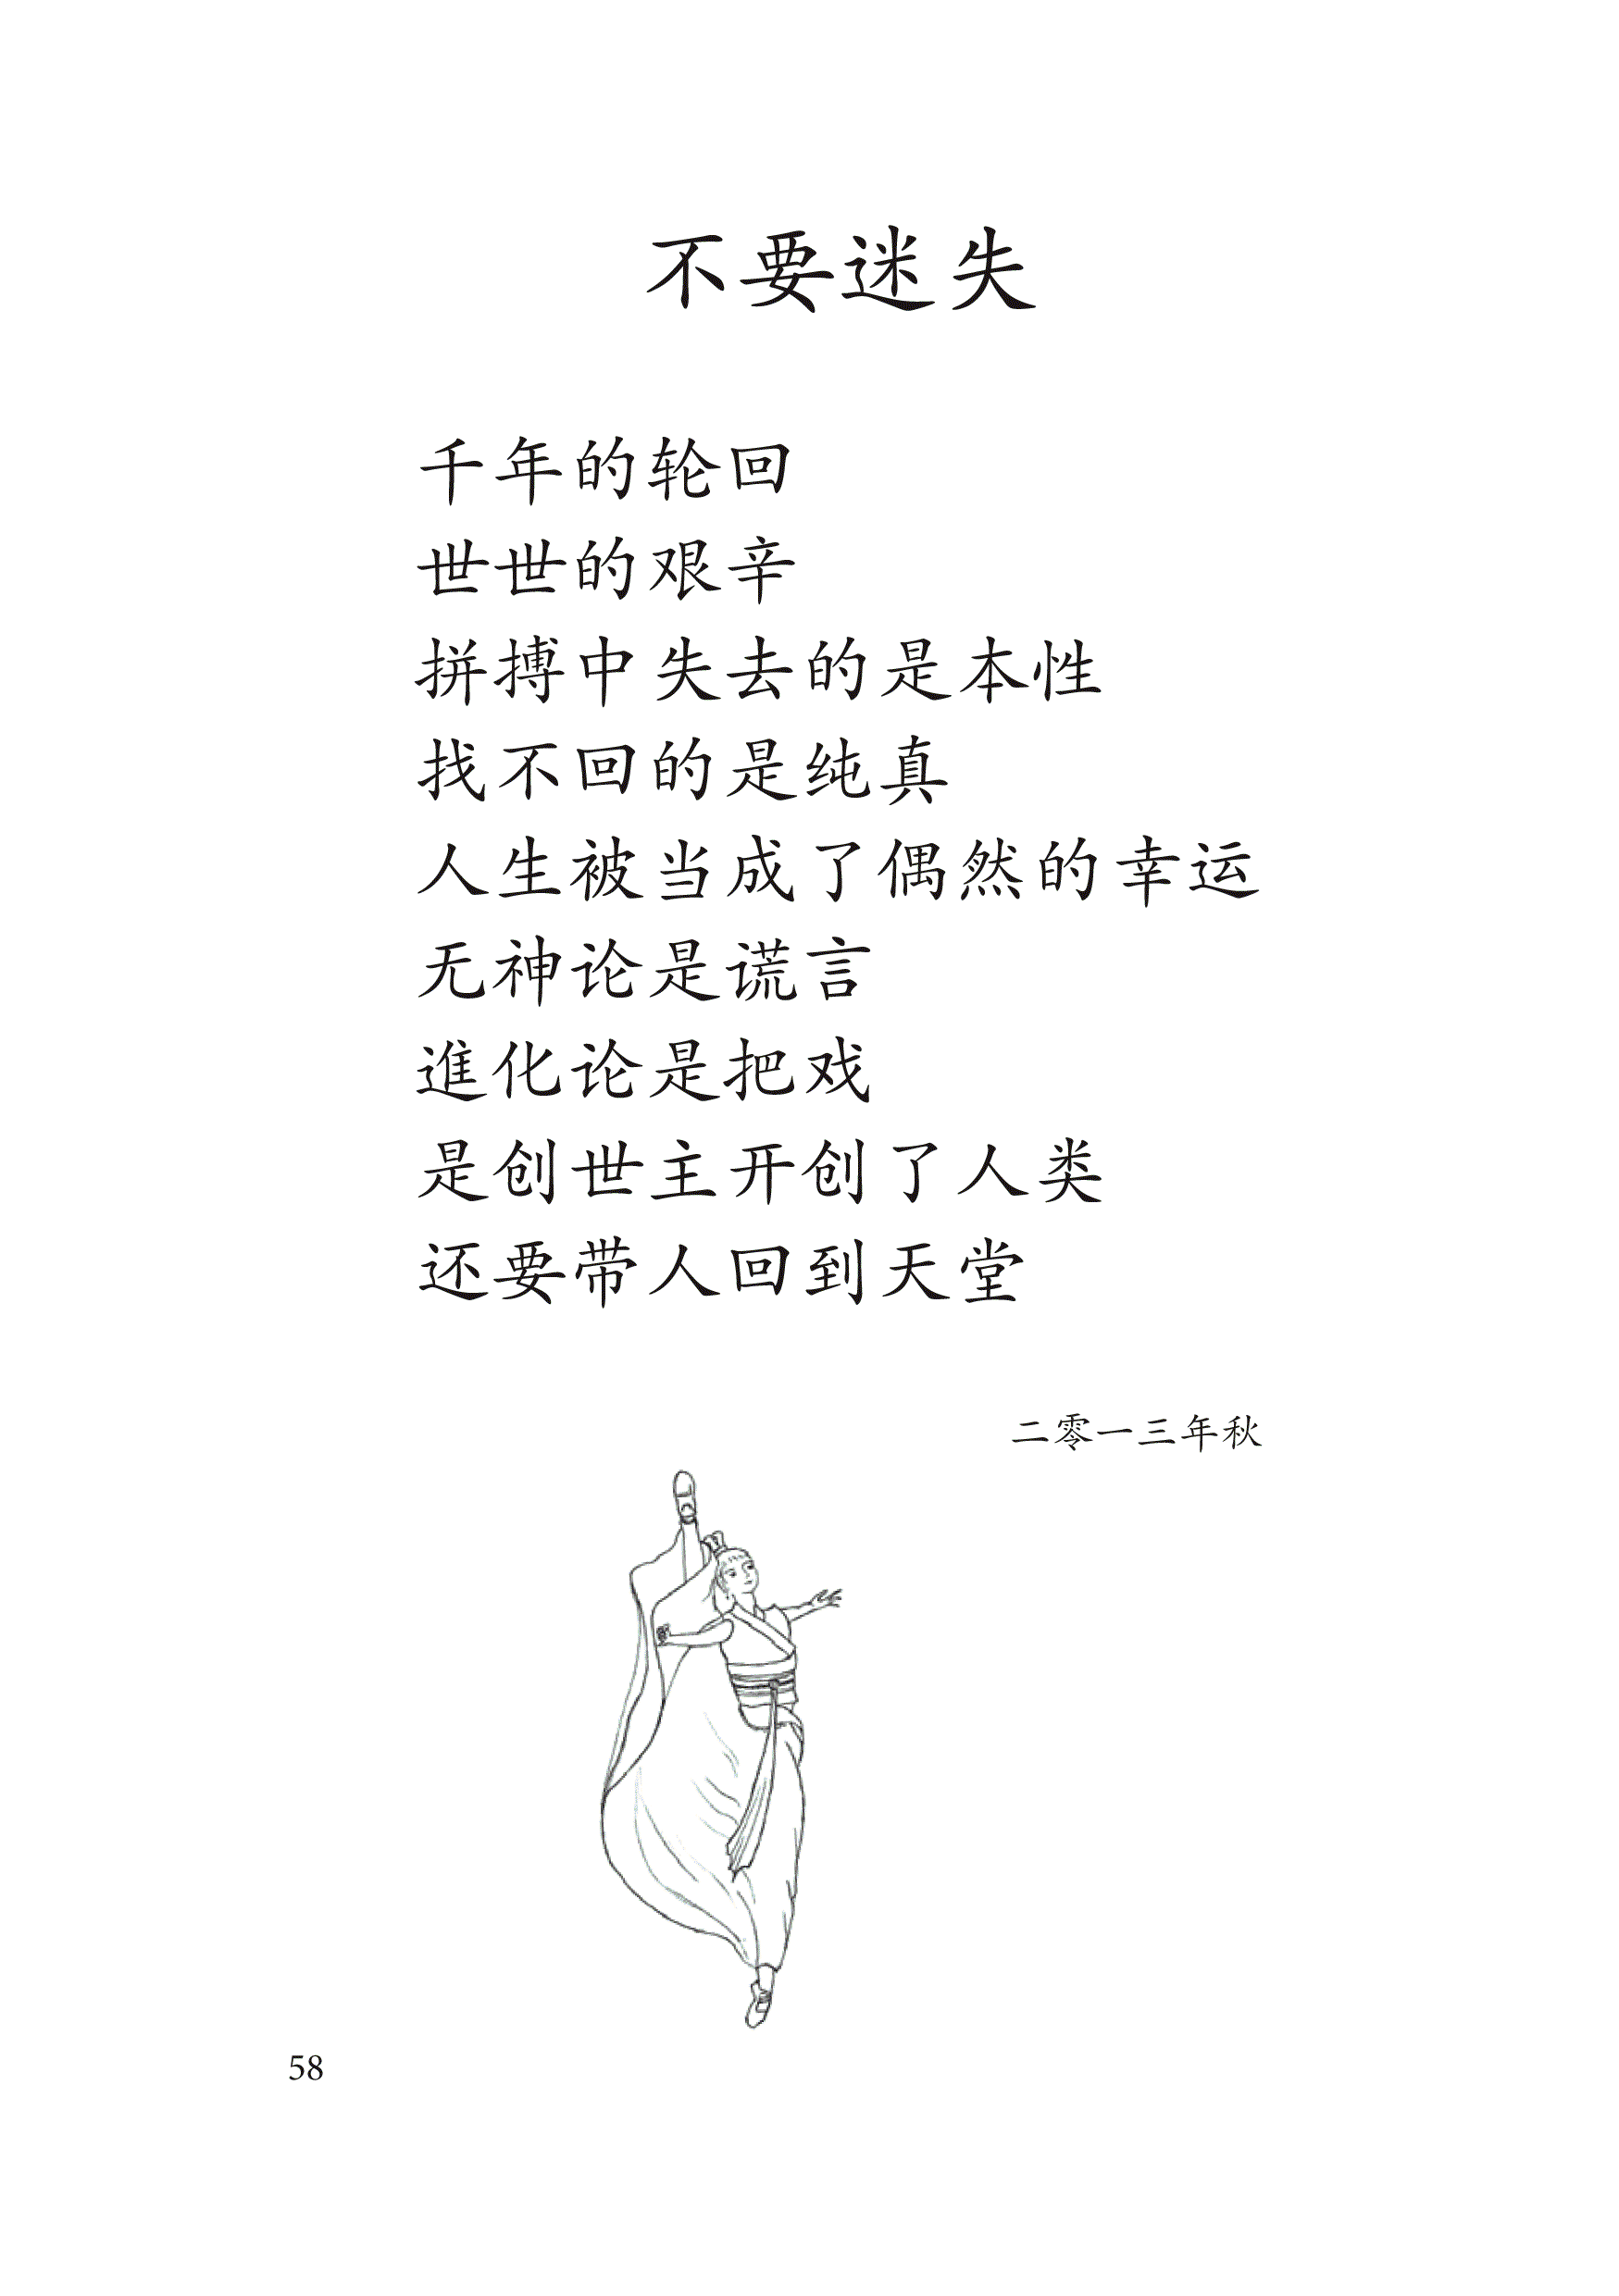 不要迷失
千年的轮回
世世的艰辛
拼搏中失去的是本性
找不回的是纯真
人生被当成了偶然的幸运
无神论是谎言
進化论是把戏
是创世主开创了人类
还要带人回到天堂
二零一三年秋
58